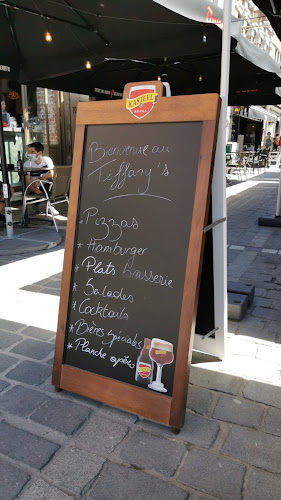 KASTEEL
ROUGE
Bienvenue au
Tiffany's
* Pizzas
* Hamburger
* Plats brasserie
* Salades
* Cocktails
* Bières spéciales
* Planche apéro